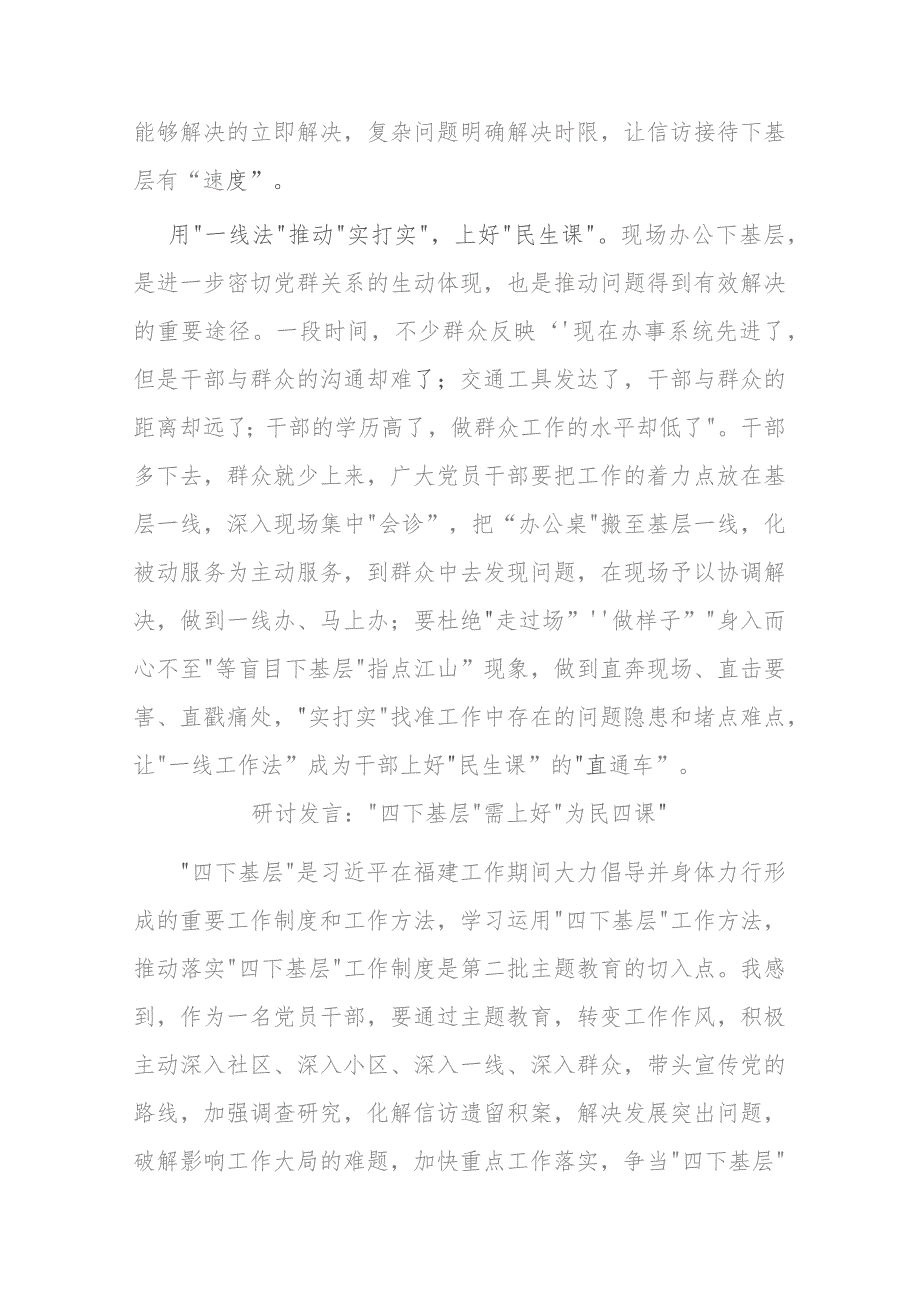 能够解决的立即解决，复杂问题明确解决时限，让信访接待下基
层有“速度”。
用"一线法"推动"实打实"，上好"民生课"。现场办公下基层，
是进一步密切党群关系的生动体现，也是推动问题得到有效解决
的重要途径。一段时间，不少群众反映‘'现在办事系统先进了，
但是干部与群众的沟通却难了；交通工具发达了，干部与群众的
距离却远了；干部的学历高了，做群众工作的水平却低了"。干部
多下去，群众就少上来，广大党员干部要把工作的着力点放在基
层一线，深入现场集中"会诊”，把“办公桌"搬至基层一线，化
被动服务为主动服务，到群众中去发现问题，在现场予以协调解
决，做到一线办、马上办；要杜绝"走过场”''做样子”"身入而
心不至"等盲目下基层"指点江山”现象，做到直奔现场、直击要
害、直戳痛处，"实打实"找准工作中存在的问题隐患和堵点难点，
让"一线工作法”成为干部上好"民生课”的"直通车”。
研讨发言："四下基层"需上好"为民四课"
"四下基层"是习近平在福建工作期间大力倡导并身体力行形
成的重要工作制度和工作方法，学习运用"四下基层"工作方法，
推动落实"四下基层"工作制度是第二批主题教育的切入点。我感
到，作为一名党员干部，要通过主题教育，转变工作作风，积极
主动深入社区、深入小区、深入一线、深入群众，带头宣传党的
路线，加强调查研究，化解信访遗留积案，解决发展突出问题，
破解影响工作大局的难题，加快重点工作落实，争当"四下基层"